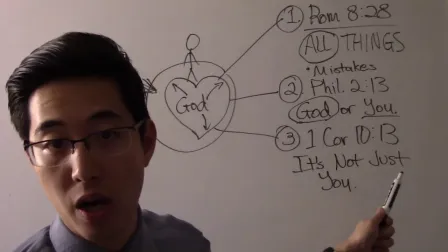 God
① Rom 8:28
ALL THINGS
• Mistakes
② Phil. 2:13
God or You.
③ 1 Cor 10:13
It's Not Just
You.